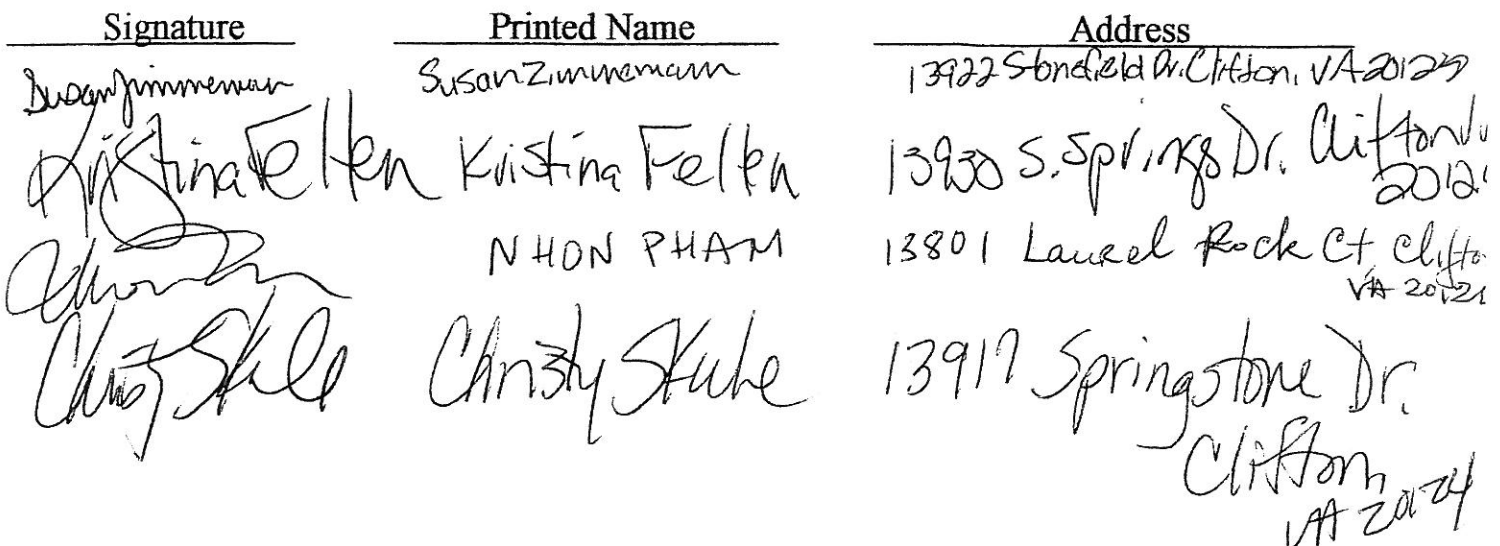 Signature Printed Name Address
Susan Zimmerman Susan Zimmemann 13922 Stonefield Dr. Clifton, VA 20124
Kristina Felten Kristina Felten 13930 S. Springs Dr. Clifton
2012
NHON PHAM 13801 Laurel Rock Ct Clifto
VA 2012
Christy Christy 13917 Springstone Dr.
Clifton
VA 20124